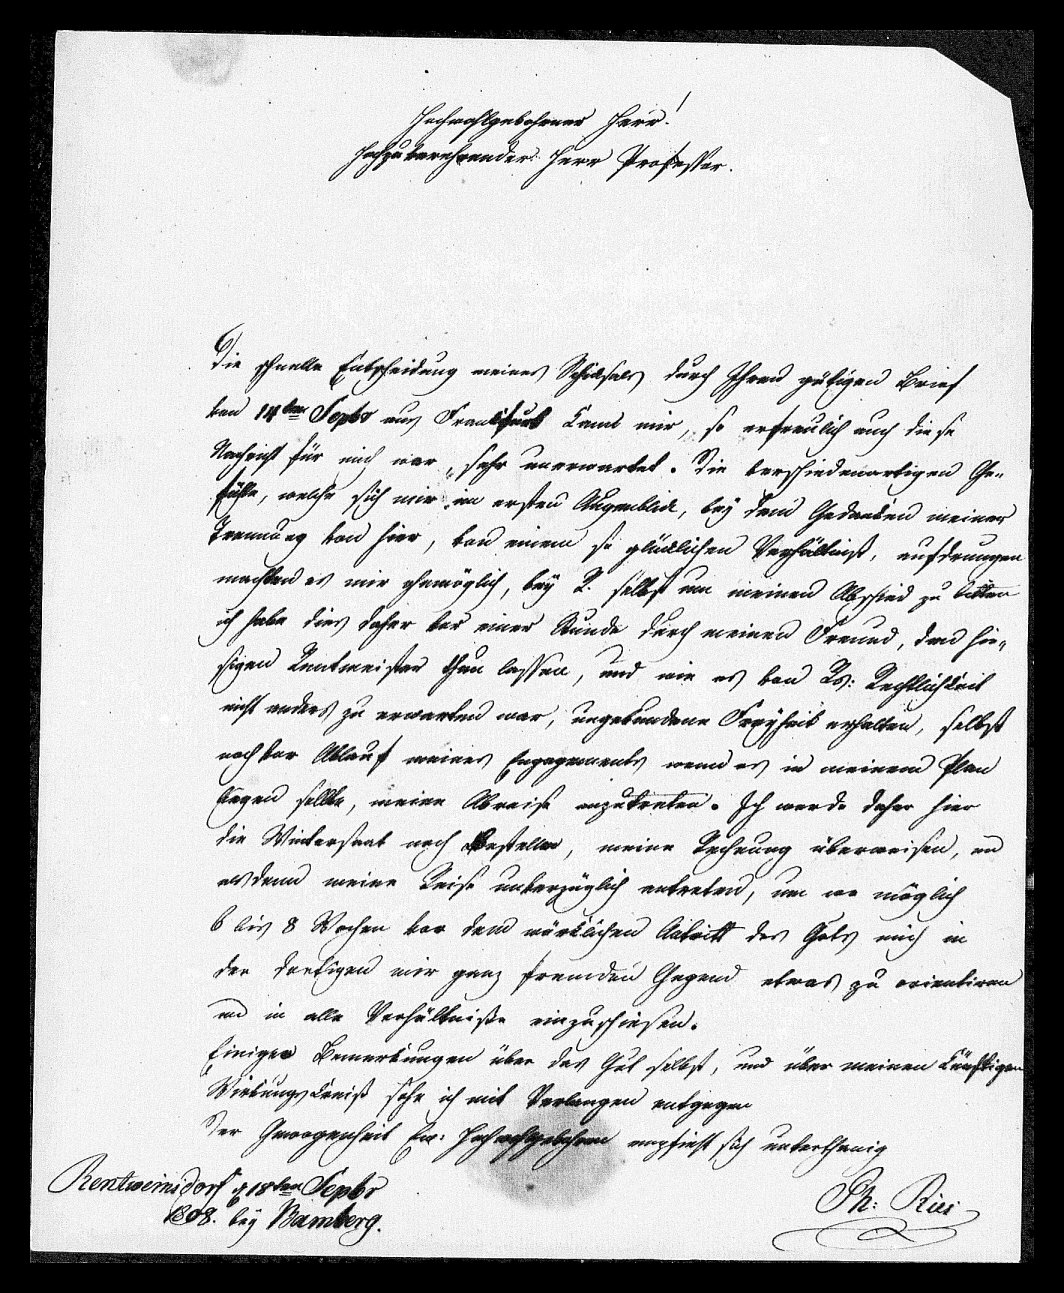 Hochwohlgebohrner Herr!
Hochzuverehrender Herr Professor.
Die schnelle Entscheidung meines Schiksals durch Ihren gütigen Brief
vom 14ten Septbr aus Frankfurt kam mir, so erfreulich auch diese
Nachricht für mich war, sehr unerwartet. Die verschiedenartigen Ge-
fühle, welche sich mir im ersten Augenblick, bey dem Gedanken meiner
Trennung von hier, von einem so glücklichen Verhältniß, aufdrungen
machten es mir unmöglich, bey R. selbst um meinen Abschied zu bitten
ich habe dies daher vor einer Stunde durch meinen Freund, den hie-
sigen Rentmeister thun lassen, und wie es von Rs: Rechtlichkeit
nicht anders zu erwarten war, ungebundene Freyheit erhalten, selbst
noch vor Ablauf meines Engagements wenn es in meinem Plan
liegen sollte, meine Abreise anzutreten. Ich werde daher hier
die Wintersaat noch bestellen, meine Rechnung überweisen, und
alsdann meine Reise unverzüglich antreten, um wo möglich
6 bis 8 Wochen vor dem würklichen Antritt des Guts mich in
der dortigen mir ganz fremden Gegend etwas zu orientiren
und in alle Verhältniße einzuschießen.
Einigen Bemerkungen über das Gut selbst, und über meinen künftigen
Wirkungskreiß sehe ich mit Verlangen entgegen
Der Gewogenheit Ew: Hochwohlgebohren empfiehlt sich unterthänig
Rentweinsdorf d 18ten Septbr
1808. bey Bamberg.
Ph: Ries